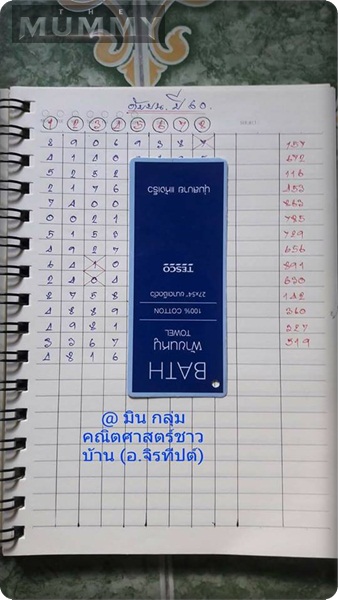 THE
MUMMY
คู่บน ปี 60.
1 2 3 4 5 6 7 8
8 9 0 6 9 3 8 7 157
4 1 4 0 672
5 2 5 2 116
2 1 7 6 453
7 4 0 0 863
0 0 2 1 785
5 1 5 3 729
4 9 2 7 656
6 4 1 0 891
2 4 0 4 630
8 7 5 8 142
4 8 8 9 360
4 9 8 1 527
3 3 6 7 519
4 8 1 6
BATH
ผ้าขนหนู
TOWEL
100% COTTON
27x54" ขนาดเช็ดตัว
TESCO
นุ่มสบาย แห้งเร็ว
@ มิน กลุ่ม
คณิตศาสตร์ชาว
บ้าน (อ.จิรทีปต์)